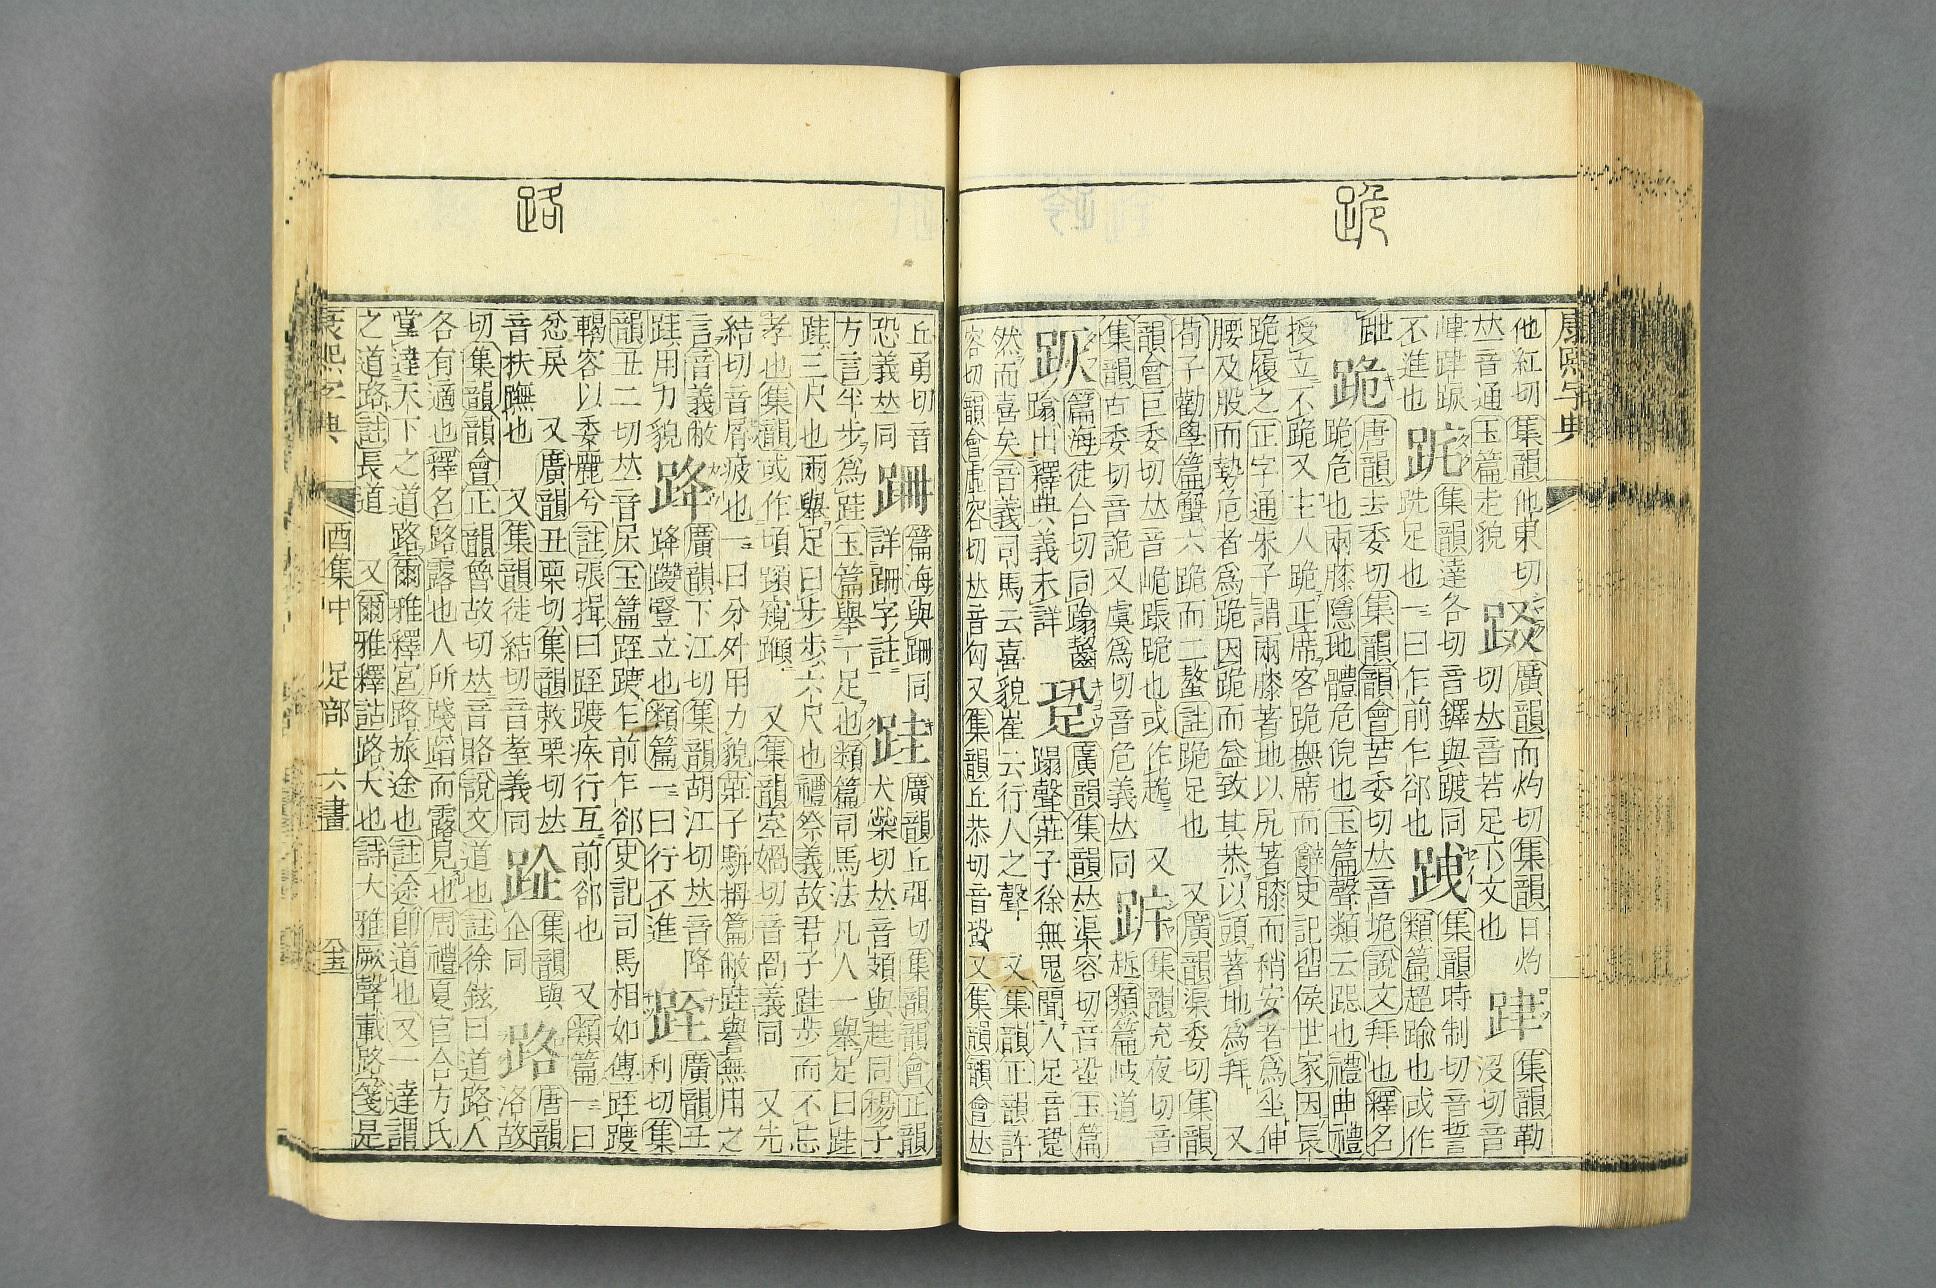 跪
他紅切集韻他東切
𠀤音通玉篇走貌
不進也
跣足也一曰乍前乍卻也
類篇超踰也或作
跪
唐韻去委切集韻韻會苦委切𠀤音垝說文拜也釋名
跪危也兩膝隱地體危倪也玉篇聲類云跽也禮曲禮
授立不跪又主人跪正席客跪撫席而辭史記留侯世家因長
跪履之正字通朱子謂兩膝著地以尻著膝而稍安者爲坐伸
腰及股而勢危者爲跪因跪而益致其恭以頭著地爲拜又
荀子勸學篇蟹六跪而二螯註跪足也又廣韻渠委切集韻
韻會巨委切𠀤音㠉䟱跪也或作𧻜又
集韻古委切音詭又虞爲切音危義𠀤同
篇海徒合切同蹹齧
蹹出釋典義未詳
跫
廣韻集韻𠀤渠容切音蛩玉篇
蹋聲莊子徐無鬼聞人足音跫
然而喜矣音義司馬云喜貌崔云行人之聲又集韻正韻許
容切韻會虛容切𠀤音匈又集韻丘恭切音銎又集韻韻會𠀤
康熙字典
路
丘勇切音
恐義𠀤同
跚
篇海與跚同
詳跚字註
跬
廣韻丘弭切集韻韻會正韻
犬橤切𠀤音頍與䞨同揚子
方言半步爲跬玉篇舉一足也類篇司馬法凡人一舉足曰跬
跬三尺也兩舉足曰步步六尺也禮祭義故君子跬步而不忘
孝也集韻或作頃蹞窺䠑又集韻空媧切音咼義同又先
結切音屑疲也一曰分外用力貌莊子駢拇篇敝跬譽無用之
言音義敝
跬用力貌
跭
廣韻下江切集韻胡江切𠀤音降
跭䠫豎立也類篇一曰行不進
跮
廣韻丑
利切集
韻丑二切𠀤音杘玉篇跮踱乍前乍卻史記司馬相如傳跮踱
輵容以委麗兮註張揖曰跮踱疾行互前卻也又類篇一曰
忿戾又廣韻丑栗切集韻敕栗切𠀤
音抶𨅥也又集韻徒結切音耊義同
集韻與
企同
路
唐韻
洛故
切集韻韻會正韻魯故切𠀤音賂說文道也註徐鉉曰道路人
各有適也釋名路露也人所踐蹈而露見也周禮夏官合方氏
掌達天下之道路爾雅釋宮路旅途也註途卽道也又一達謂
之道路註長道又爾雅釋詁路大也詩大雅厥聲載路箋是
康熙字典 酉集中 足部 六畫